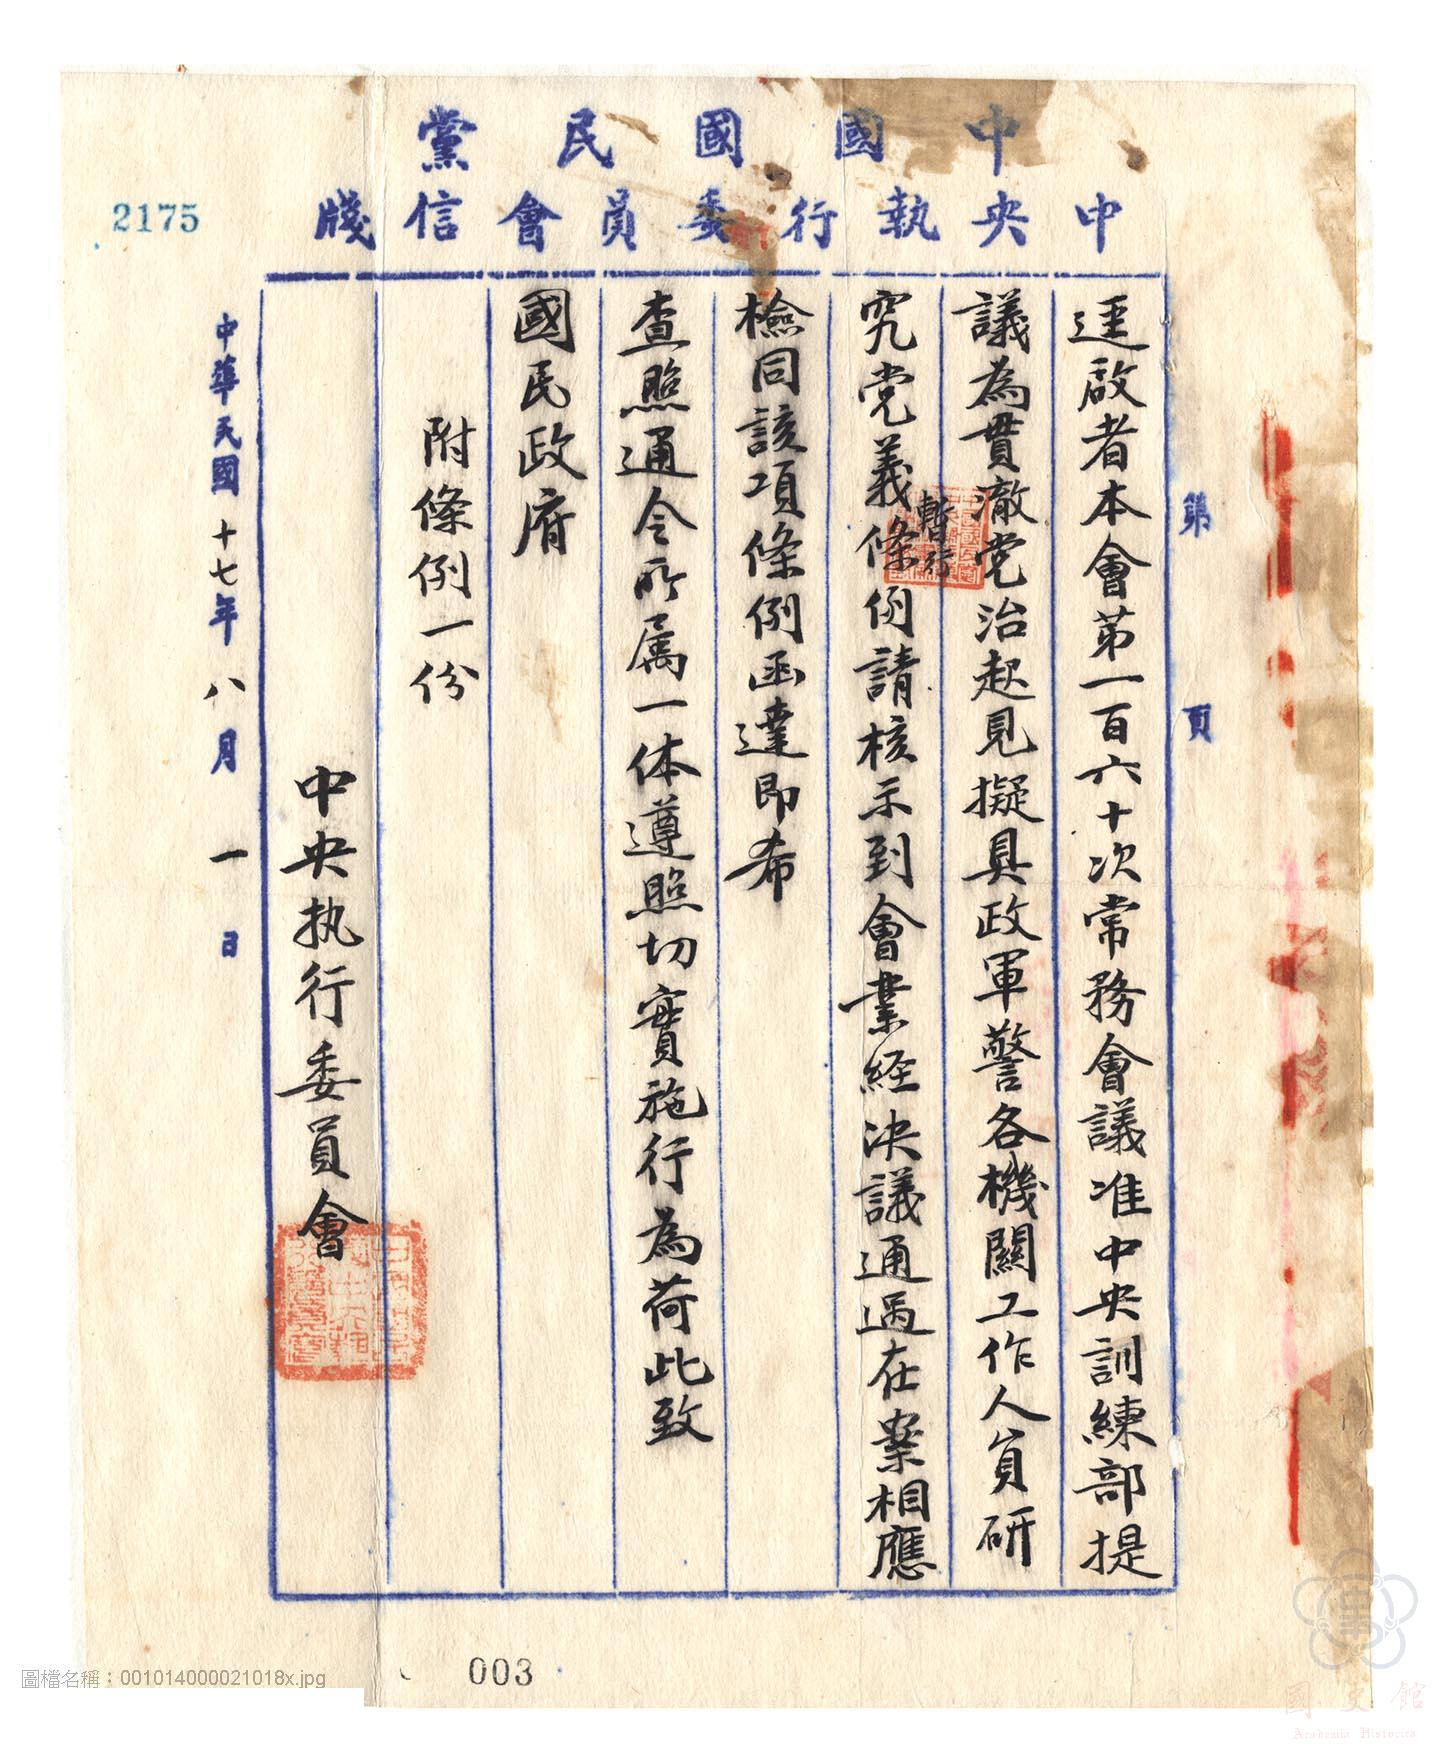 中國國民黨
中央執行委員會信牋
2175
第 頁
逕啟者本會第一百六十次常務會議准中央訓練部提
議為貫澈党治起見擬具政軍警各機關工作人員研
究党義暫行條例請核示到會業経決議通過在案相應
檢同該項條例函達即希
查照通令所属一体遵照切實施行為荷此致
國民政府
附條例一份
中央执行委員會
中華民國十七年八月一日
003
圖檔名稱：001014000021018x.jpg
國史館
Academia Historica